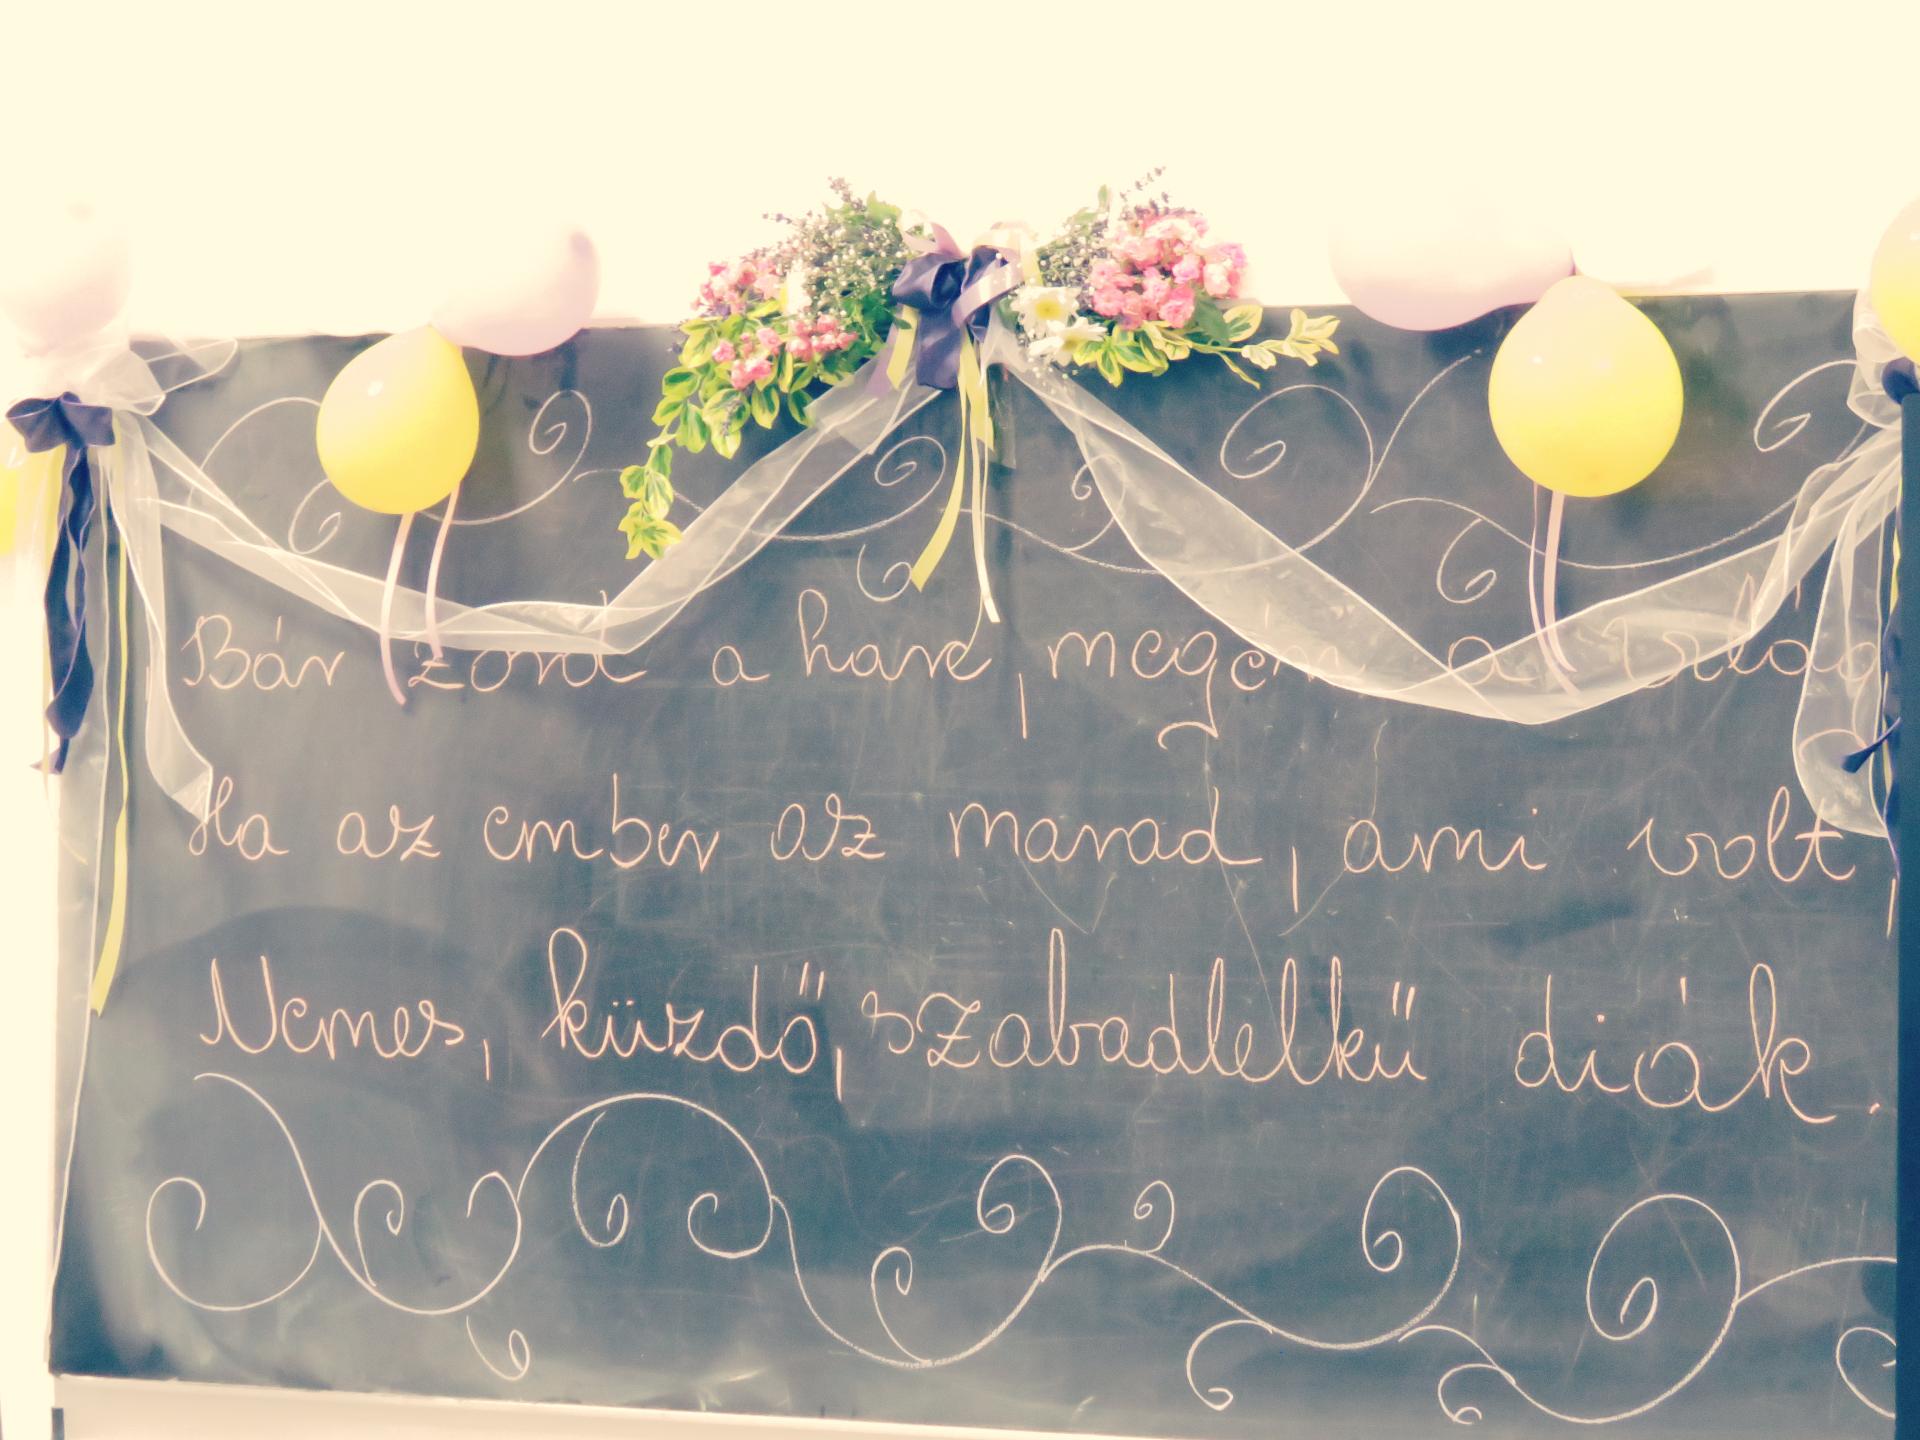 Bár zord a harc, megéri a világ
Ha az ember az marad, ami volt,
Nemes, küzdő, szabadlelkű diák.